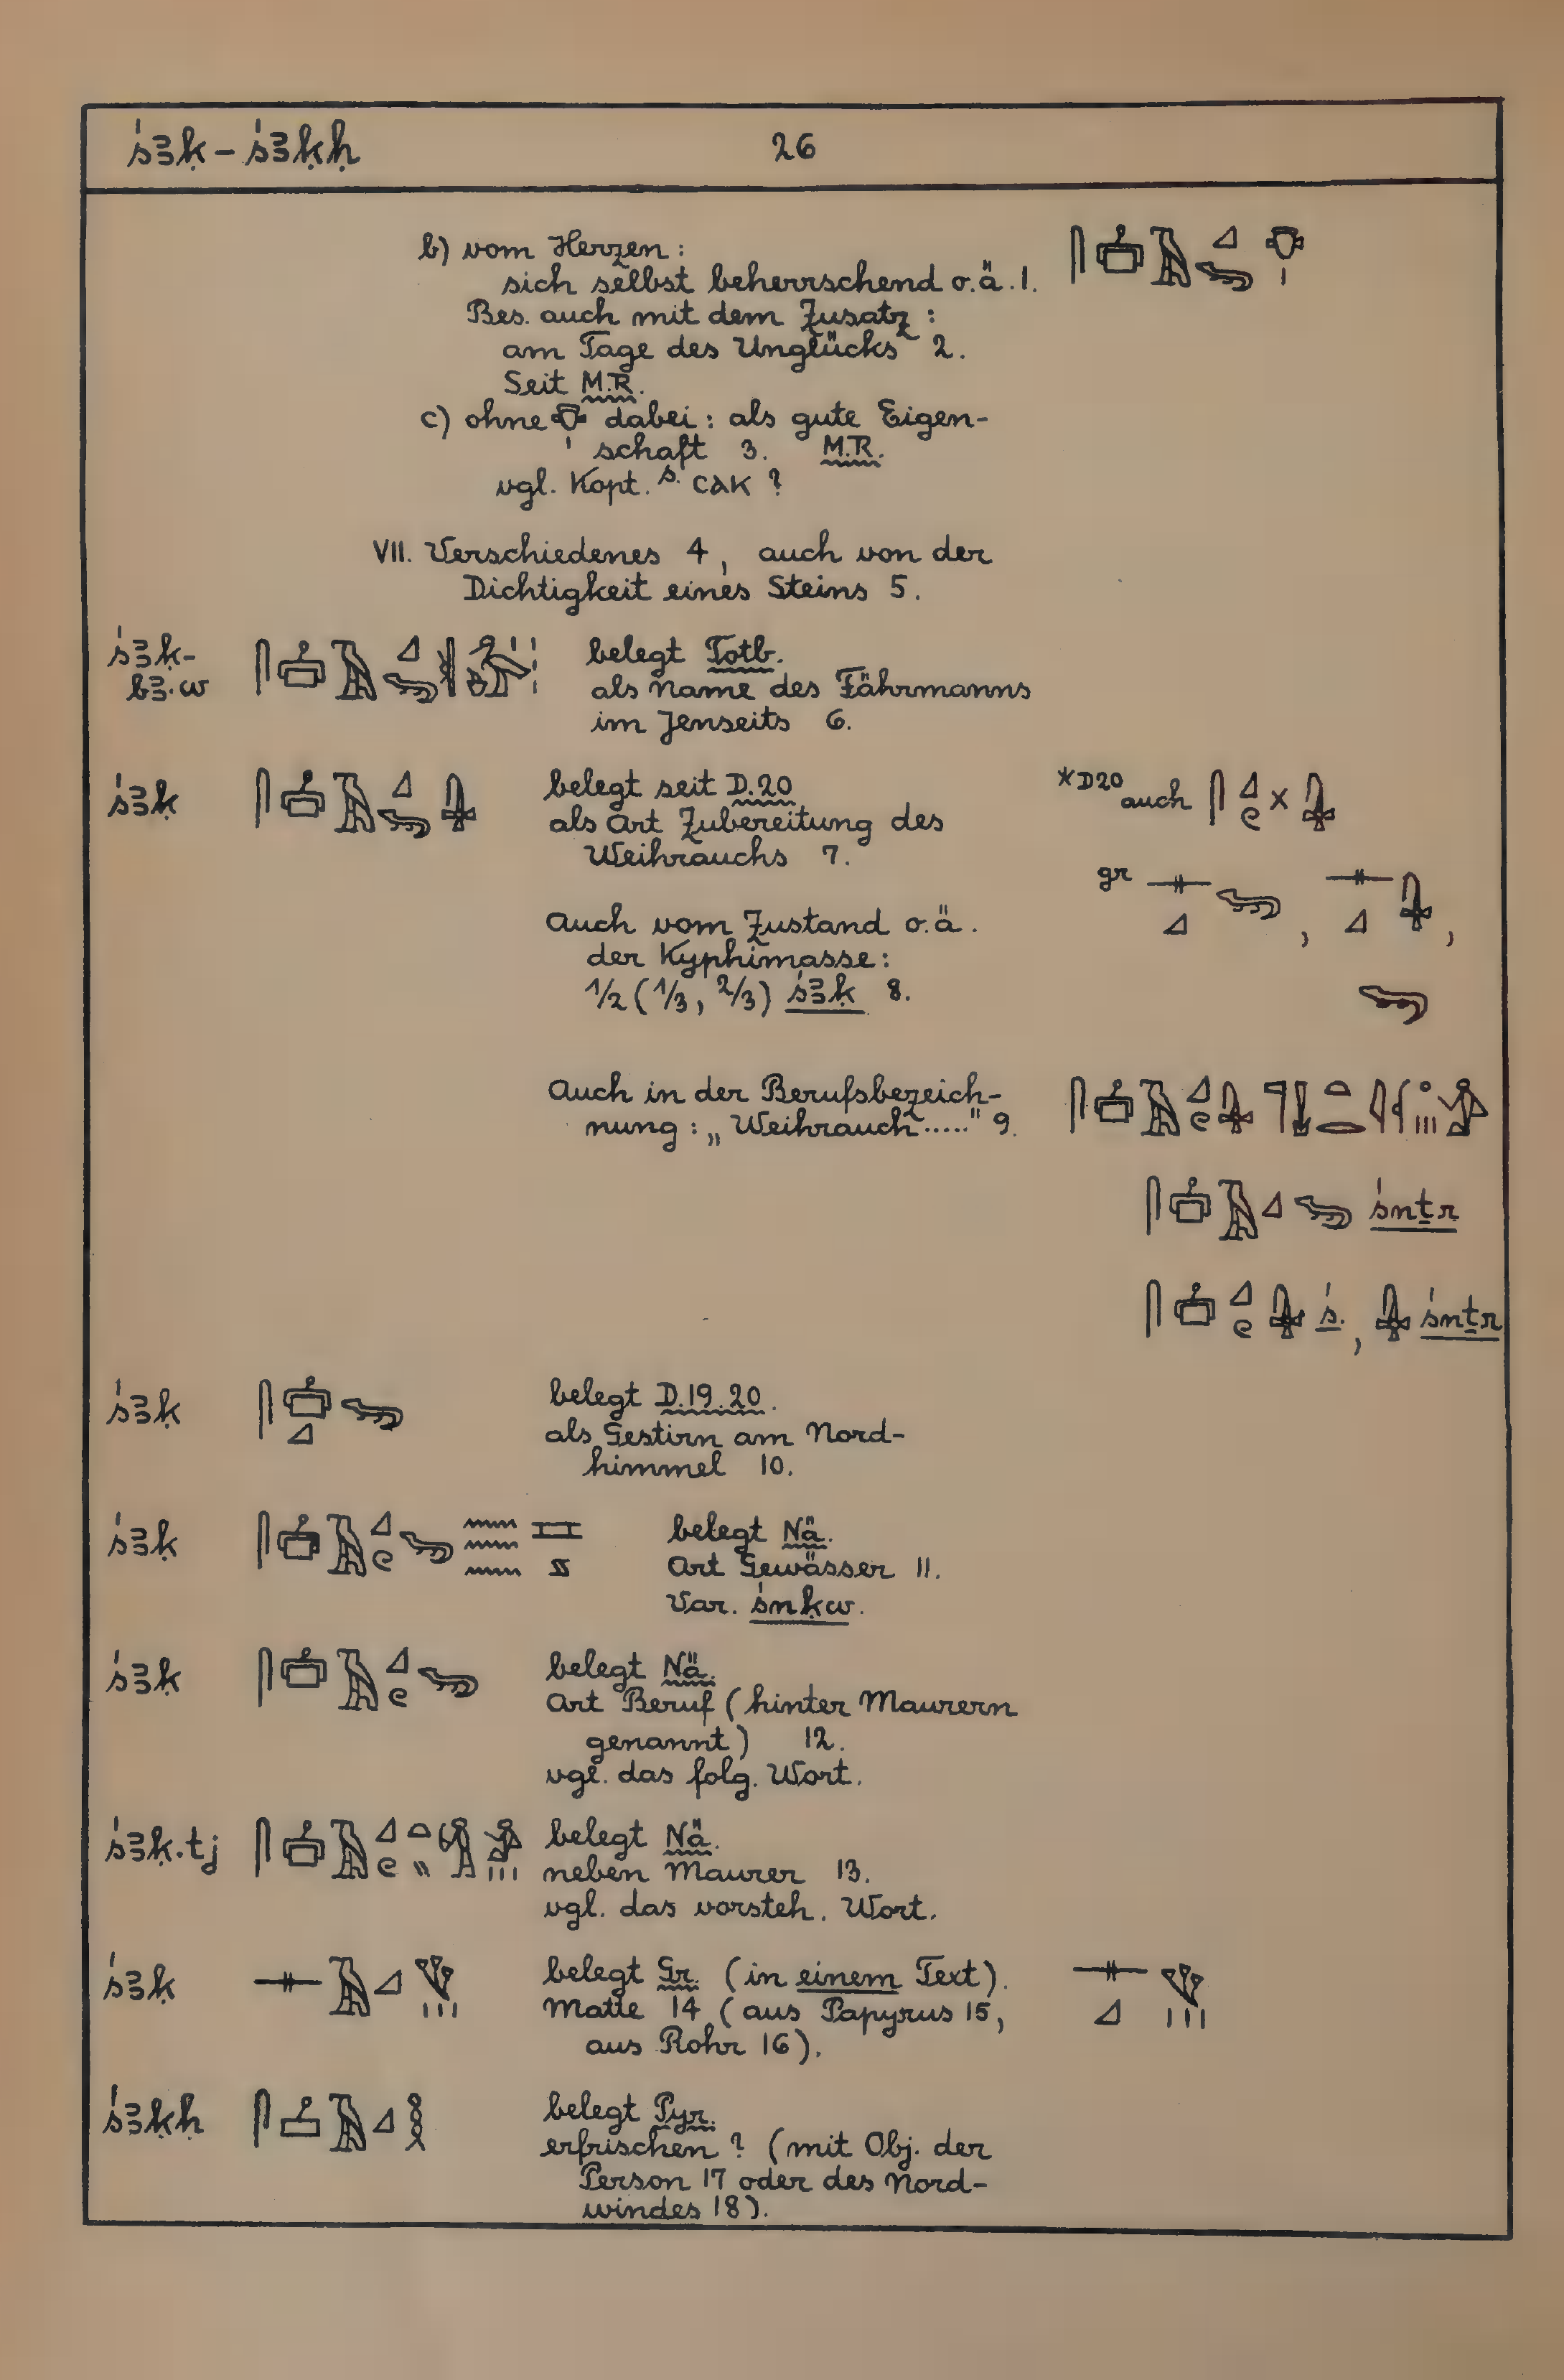 śꜣḳ – śꜣḳḥ 26
b) vom Herzen:
sich selbst beherrschend o.ä. 1.
Bes. auch mit dem Zusatz:
am Tage des Unglücks 2.
Seit M.R.
c) ohne 𓄣 dabei: als gute Eigen-
schaft 3. M.R.
vgl. Kopt. S. ⲥⲁⲕ ?
VII. Verschiedenes 4, auch von der
Dichtigkeit eines Steins 5.
śꜣḳ-
bꜣ.w
belegt Totb.
als Name des Fährmanns
im Jenseits 6.
śꜣḳ belegt seit D.20
als Art Zubereitung des
Weihrauchs 7.
*D20 auch
gr
Auch vom Zustand o.ä.
der Kyphimasse:
1/2 (1/3, 2/3) śꜣḳ 8.
Auch in der Berufsbezeich-
nung: „Weihrauch....." 9.
śnṯr
ś. , śnṯr
śꜣḳ belegt D.19.20.
als Gestirn am Nord-
himmel 10.
śꜣḳ belegt Nä.
Art Gewässer 11.
Var. śnḳw.
śꜣḳ belegt Nä.
Art Beruf (hinter Maurern
genannt) 12.
vgl. das folg. Wort.
śꜣḳ.tj belegt Nä.
neben Maurer 13.
vgl. das vorsteh. Wort.
śꜣḳ belegt Gr. (in einem Text).
Matte 14 (aus Papyrus 15,
aus Rohr 16).
śꜣḳḥ belegt Pyr.
erfrischen ? (mit Obj. der
Person 17 oder des Nord-
windes 18).